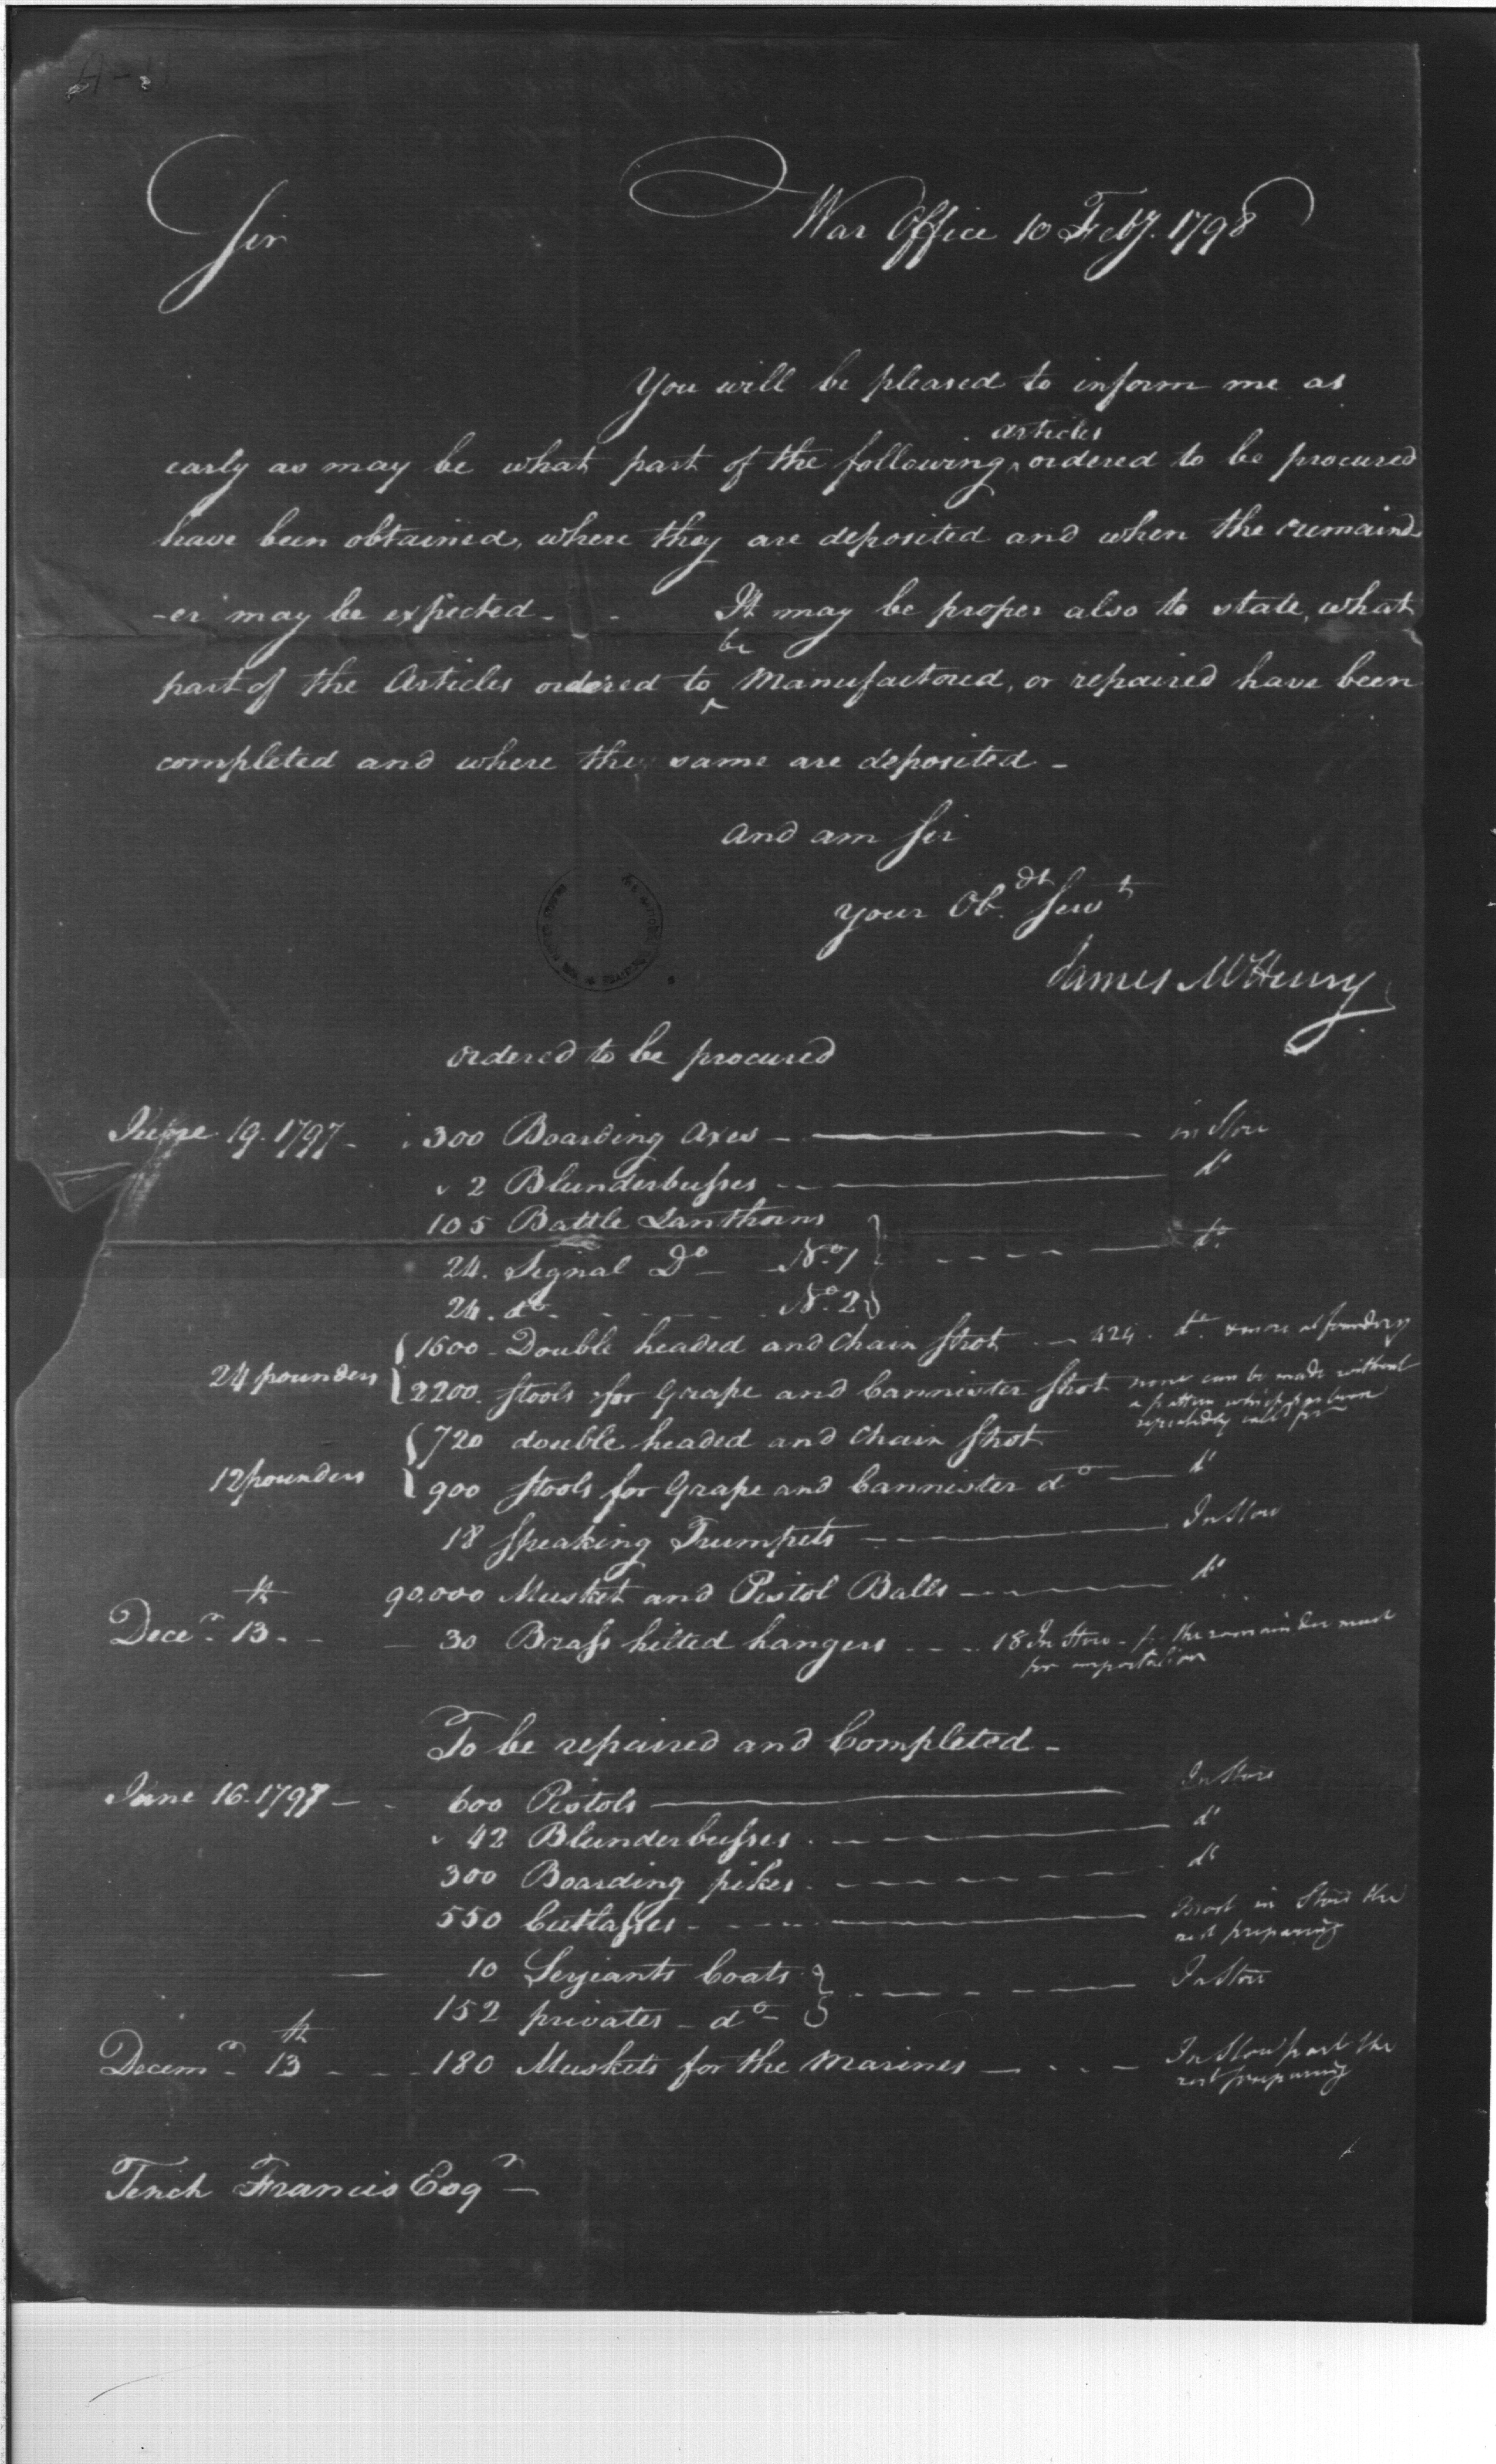 Sir
War Office 10 Feby. 1798
You will be pleased to inform me as
early as may be what part of the following articles ordered to be procured
have been obtained, where they are deposited and when the remaind
-er may be expected - - It may be proper also to state, what
part of the Articles ordered to be Manufactored, or repaired have been
completed and where the same are deposited -
and am Sir
your Obdt. Servt
James McHenry
ordered to be procured
June 19. 1797 - 300 Boarding Axes - in Store
2 Blunderbusses - do
105 Battle Lanthorns
24. Signal Do - No. 1 } - - - - do
24. do - - - No. 2
24 pounders { 1600 - Double headed and Chain Shot - 424 . do. & more at foundery
2200. Stools for Grape and Cannister Shot none can be made without
a pattern which has been
repeatedly called for
12 pounders { 720 double headed and Chain Shot
900 Stools for Grape and Cannister do - do
18 Speaking Trumpets - In Store
90.000 Musket and Pistol Balls - do
Decer. 13th - - 30 Brass hilted hangers - - - 18 In Store - the remainder must
for importation
To be repaired and Completed -
June 16. 1797 - - 600 Pistols - In Store
42 Blunderbusses - do
300 Boarding pikes - do
550 Cutlasses - Most in Store the
rest preparing
10 Serjeants Coats } - In Store
152 privates - do -
Decemr. 13th - - - 180 Muskets for the Marines - - - In Store part the
rest preparing
Tench Francis Esqr -